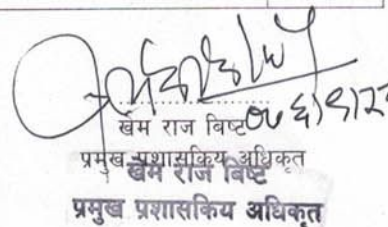 खेम राज बिष्ट
प्रमुख प्रशासकिय अधिकृत
खेम राज बिष्ट
प्रमुख प्रशासकिय अधिकृत